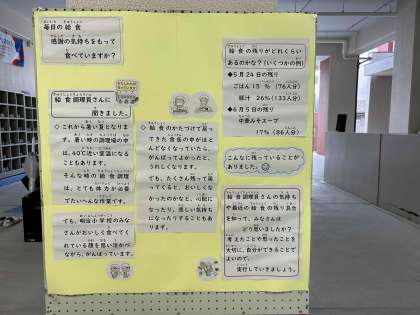 毎日の給食
感謝の気持ちをもって
食べていますか?
給食調理員さんに
聞きました。
◇これから暑い夏となりま
す。暑い時の調理場の中
は、40℃近い室温になる
こともあります。
そんな時の給食調理員
は、とても体力が必要
でたいへんな作業です。
でも、明治小学校のみな
さんがおいしく食べてく
れている顔を思い浮かべ
ながら、がんばっています。
給食のかたづけで戻っ
てきた食缶の中がほと
んどなくなっていたら、
がんばってよかったと、
うれしくなります。
でも、たくさん残って戻
ってくると、おいしくな
かったのかなと、心配に
なったり、悲しい気持ち
になったりすることもあ
ります。
給食の残りがどれくらい
あるのかな?(いくつかの例)
◆5月24日の残り
ごはん 15% (76人分)
豚汁 26%(133人分)
◆6月5日の残り
中華みそスープ
17% (86人分)
こんなに残っていることが
ありました。
給食調理員さんの気持ち
や最近の給食の残り具合
を知って、みなさんは
どう思いましたか?
考えたことや思ったことを
大切に、自分ができることで
よいので、
実行していきましょう。